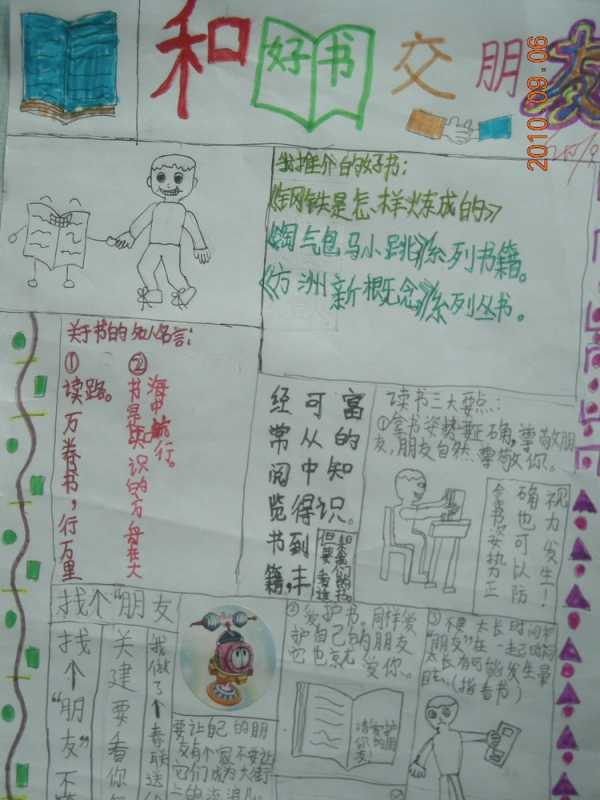 和好书交朋友
2010.09.06
我推介的好书:
《钢铁是怎样炼成的》
《淘气包马小跳》系列书籍。
《方洲新概念》系列丛书。
关于书的名人名言:
①
读万卷书,行万里
路。
②
书是知识的力母在大
海中航行。
经常阅览书籍,
可从中得到丰
富的知识。
读书三大要点:
①拿书姿势要正确,尊敬朋
友,朋友自然尊敬你。
拿书姿势正
确也可以防
视力发生!
找个“朋友
找个“朋友”不
关建要看你
我做了个春联送
要让自己的朋
友有个家不要让
它们成为大街
上的流浪儿。
②爱护书,同样爱
护自己的朋友
它也就爱你。
请爱护
你的朋
友!
③不要太长时间和
“朋友”在一起的
太长有可能发生
(指看书)